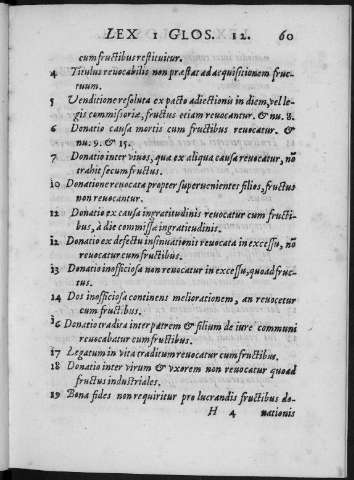 LEX 1 GLOS. 12. 60
cum fructibus restituitur.
4 Titulus reuocabilis non præstat ad acquisitionem fruc-
tuum.
5 Venditione resoluta ex pacto adiectionis in diem, vel le-
gis commissoriæ, fructus etiam reuocantur. & nu. 8.
6 Donatio causa mortis cum fructibus reuocatur. &
nu. 9. & 15.
7 Donatio inter viuos, qua ex aliqua causa reuocatur, nõ
trahit secum fructus.
10 Donatione reuocata propter superuenientes filios, fructus
non reuocantur.
12 Donatio ex causa ingratitudinis reuocatur cum fructi-
bus, à die commissæ ingratitudinis.
12 Donatio ex defectu insinuationis reuocata in excessu, nõ
reuocatur cum fructibus.
13 Donatio inofficiosa non reuocatur in excessu, quoad fruc-
tus.
14 Dos inofficiosa continens meliorationem, an reuocetur
cum fructibus.
16 Donatio tradita inter patrem & filium de iure communi
reuocabatur cum fructibus.
17 Legatum in vita traditum reuocatur cum fructibus.
18 Donatio inter virum & vxorem non reuocatur quoad
fructus industriales.
19 Bona fides non requiritur pro lucrandis fructibus do-
H 4 nationis